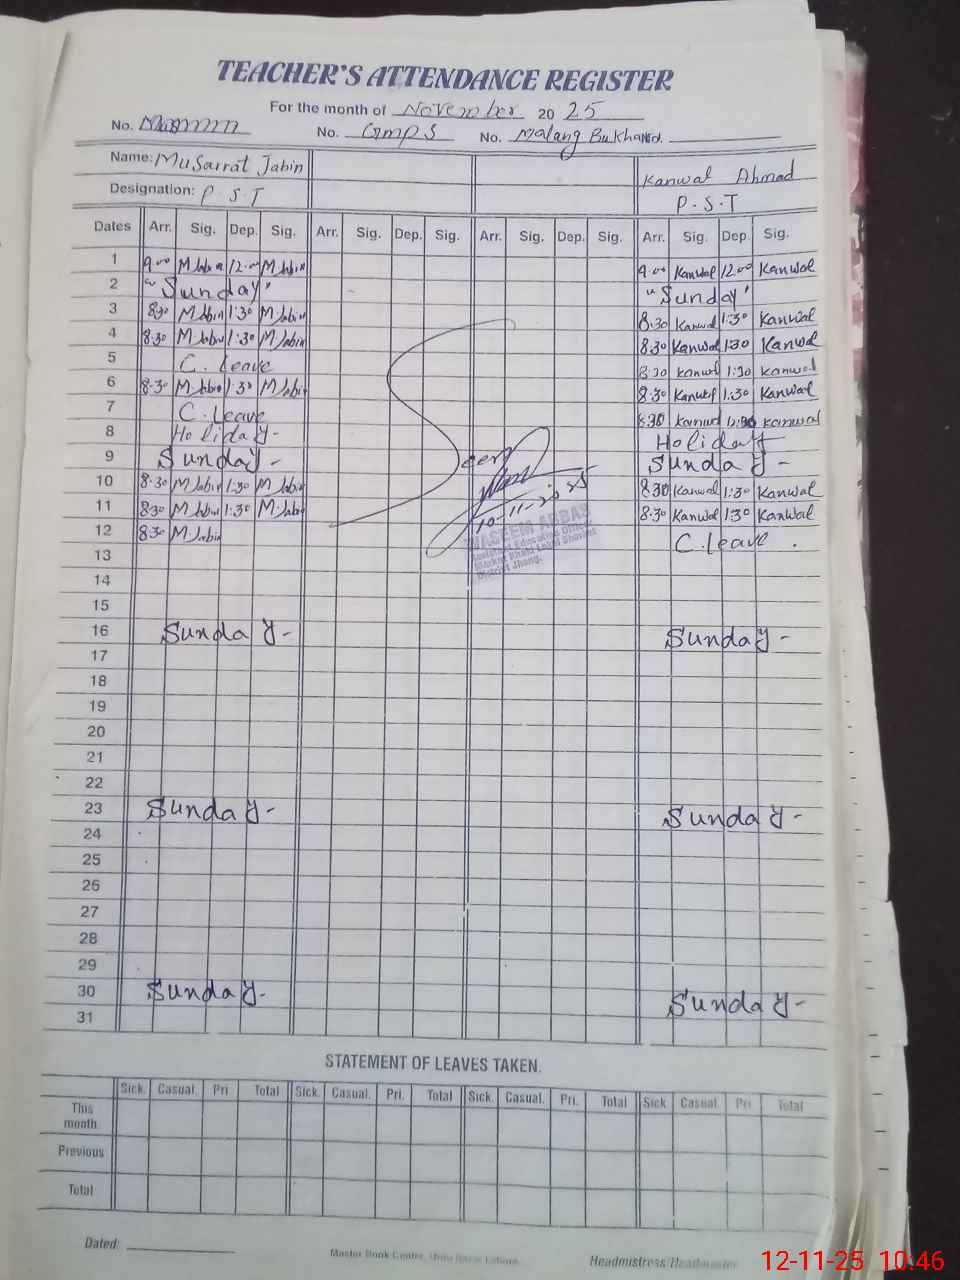 TEACHER'S ATTENDANCE REGISTER
For the month of November 20 25
No. No. GMPS No. Malang Bukhari
Name: Musarrat Jabin Kanwal Ahmad
Designation: P.S.T P.S.T
Dates Arr. Sig. Dep. Sig. Arr. Sig. Dep. Sig. Arr. Sig. Dep. Sig. Arr. Sig. Dep. Sig.
1 9.00 M Jabin 12.00 M Jabin 9.00 Kanwal 12.00 Kanwal
2 "Sunday" "Sunday"
3 8:30 M Jabin 1:30 M Jabin 8.30 Kanwal 1:30 Kanwal
4 8:30 M Jabin 1:30 M Jabin 8.30 Kanwal 1:30 Kanwal
5 C. Leave 8:30 Kanwal 1:30 Kanwal
6 8:30 M Jabin 1:30 M Jabin 8:30 Kanwal 1:30 Kanwal
7 C. Leave 8:30 Kanwal Kanwal
8 Holiday- Holiday
9 Sunday- Seen Sunday-
10 8:30 M Jabin 1:30 M Jabin 8:30 Kanwal 1:30 Kanwal
11 8:30 M Jabin 1:30 M. Jabin 10-11-2025 8:30 Kanwal 1:30 Kanwal
12 8:30 M. Jabin C. Leave .
WASEEM ABBAS
Assistant Education Officer
District Jhang.
13
14
15
16 Sunday- Sunday-
17
18
19
20
21
22
23 Sunday- Sunday-
24
25
26
27
28
29
30 Sunday- Sunday-
31
STATEMENT OF LEAVES TAKEN.
Sick. Casual. Pri. Total Sick. Casual. Pri. Total Sick. Casual. Pri. Total Sick. Casual. Pri Total
This month.
Previous
Total
Dated:
Master Book Center, Urdu Bazar Lahore.
Headmistress/Headmaster
12-11-25 10:46